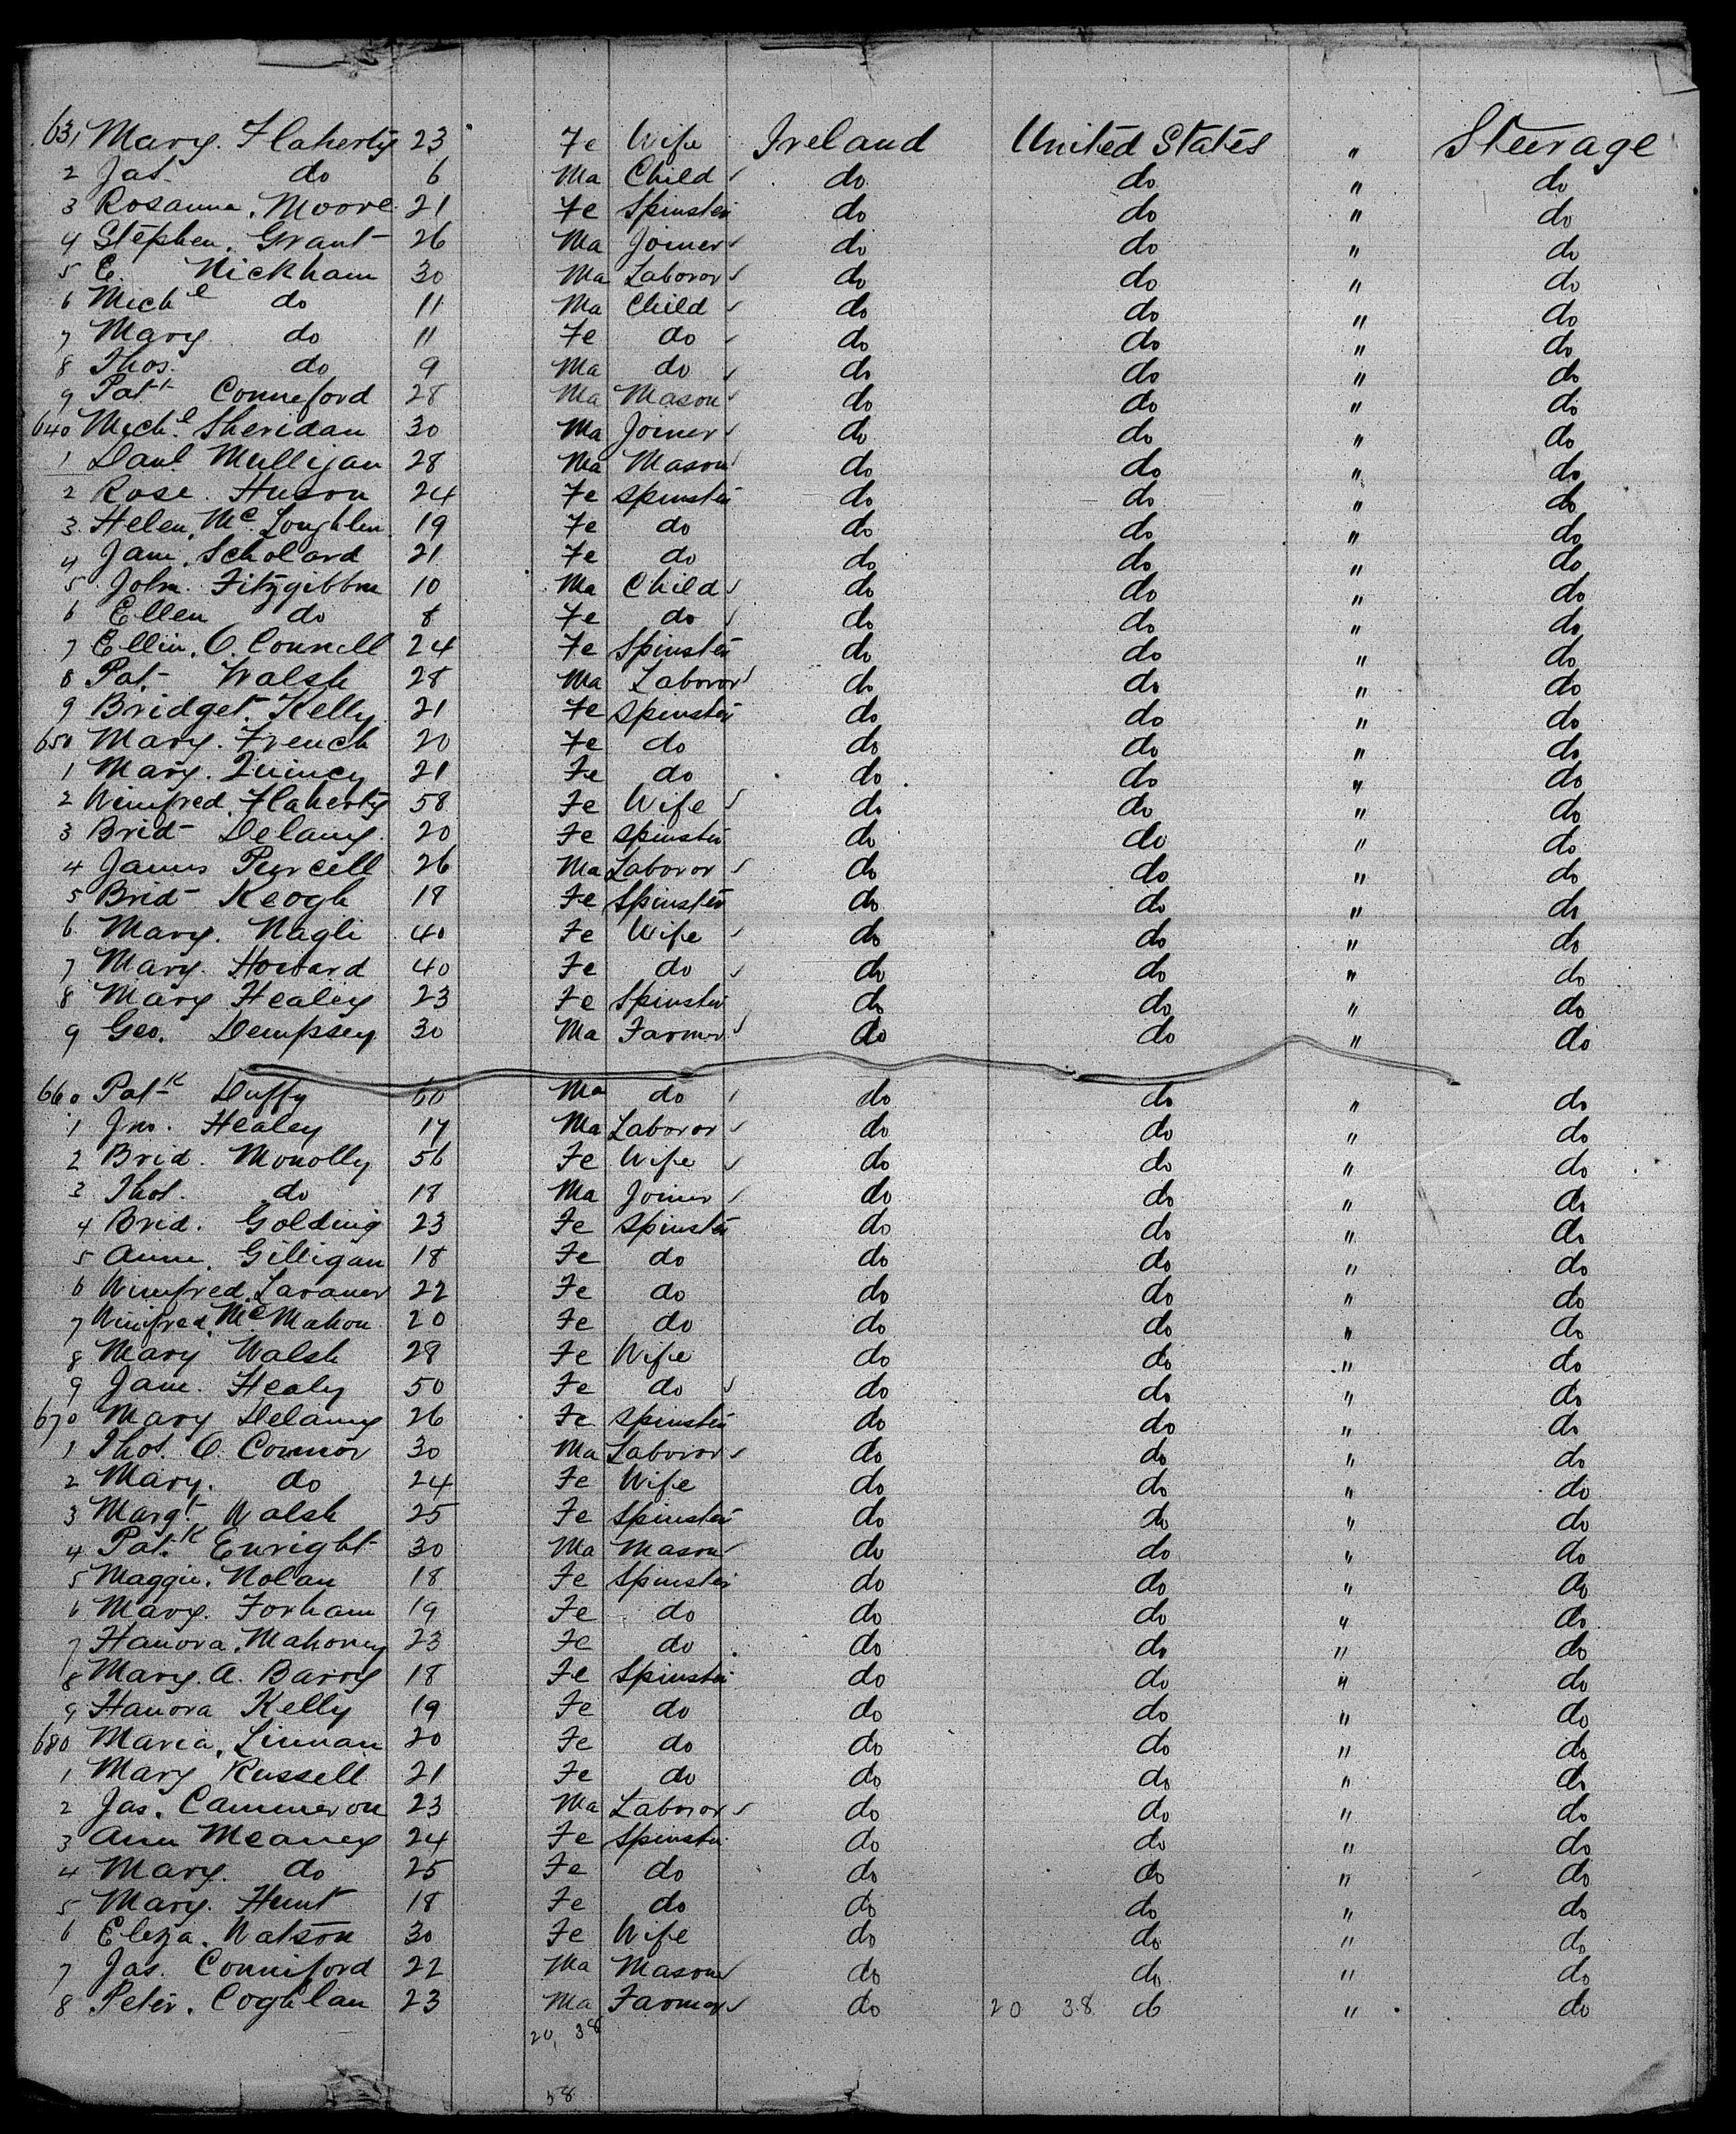 631 Mary. Flaherty 23 Fe Wife Ireland United States " Steerage
2 Jas do 6 Ma Child do do " do
3 Rosanna. Moore 21 Fe Spinster do do " do
4 Stephen. Grant 26 Ma Joiner do do " do
5 E. Nickham 30 Ma Laboror do do " do
6 Michl do 11 Ma Child do do " do
7 Mary do 11 Fe do do do " do
8 Thos. do 9 Ma do do do " do
9 Patt Conneford 28 Ma Mason do do " do
640 Michl Sheridan 30 Ma Joiner do do " do
1 Danl Mulligan 28 Ma Mason do do " do
2 Rose. Huson 24 Fe Spinster do do " do
3 Helen. Mc Loughlin 19 Fe do do do " do
4 Jane. Scholard 21 Fe do do do " do
5 John. Fitzgibbon 10 Ma Child do do " do
6 Ellen do 8 Fe do do do " do
7 Ellin. O. Connell 24 Fe Spinster do do " do
8 Pat. Walsh 28 Ma Laboror do do " do
9 Bridget. Kelly 21 Fe Spinster do do " do
650 Mary. French 20 Fe do do do " do
1 Mary. Quincy 21 Fe do do do " do
2 Winifred. Flaherty 58 Fe Wife do do " do
3 Brid Delany. 20 Fe Spinster do do " do
4 James Purcell 26 Ma Laboror do do " do
5 Brid Keogh 18 Fe Spinster do do " do
6 Mary. Nagle 40 Fe Wife do do " do
7 Mary. Howard 40 Fe do do do " do
8 Mary Healey 23 Fe Spinster do do " do
9 Geo. Dempsey 30 Ma Farmer do do " do
660 Patk Duffy 60 Ma do do do " do
1 Jno. Healey 17 Ma Laboror do do " do
2 Brid. Monolly 56 Fe Wife do do " do
3 Thos. do 18 Ma Joiner do do " do
4 Brid. Golding 23 Fe Spinster do do " do
5 Anne. Gilligan 18 Fe do do do " do
6 Winifred. 22 Fe do do do " do
7 Winifred. Mc Mahon 20 Fe do do do " do
8 Mary Walsh 28 Fe Wife do do " do
9 Jane. Healy 50 Fe do do do " do
670 Mary Delany 26 Fe Spinster do do " do
1 Thos. O. Connor 30 Ma Laboror do do " do
2 Mary. do 24 Fe Wife do do " do
3 Margt. Walsh 25 Fe Spinster do do " do
4 Patk Enright 30 Ma Mason do do " do
5 Maggie. Nolan 18 Fe Spinster do do " do
6 Mary. Forham 19 Fe do do do " do
7 Hanora. Mahoney 23 Fe do do do " do
8 Mary. A. Barry 18 Fe Spinster do do " do
9 Hanora Kelly 19 Fe do do do " do
680 Maria. Linnan 20 Fe do do do " do
1 Mary Russell 21 Fe do do do " do
2 Jas. Cammeron 23 Ma Laboror do do " do
3 Ann Meaney 24 Fe Spinster do do " do
4 Mary. do 25 Fe do do do " do
5 Mary. Hunt 18 Fe do do do " do
6 Eliza. Watson 30 Fe Wife do do " do
7 Jas. Conniford 22 Ma Mason do do " do
8 Peter. Coghlan 23 Ma Farmer do 20 38 do " do
20, 38
58